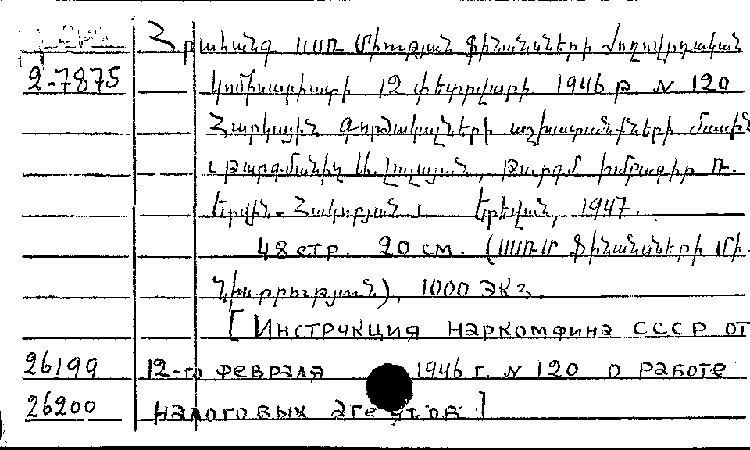 Հրահանգ ՍՍՌ Միության Ֆինանսների Ժողովրդական
2-7875 Կոմիսարիատի 12 փետրվարի 1946 թ. N 120
Հարկային գործակալների աշխատանքների մասին
թարգմ. խմբագիր Ռ.
Երզն.-Հակոբյան Երևան, 1947.
48 стр. 20 см. (ՍՍՌՄ Ֆինանսների Մի-
նիստրություն), 1000 экз.
[Инструкция наркомфина СССР от
26199 12-го февраля 1946 г. N 120 о работе
26200 налоговых агентов]